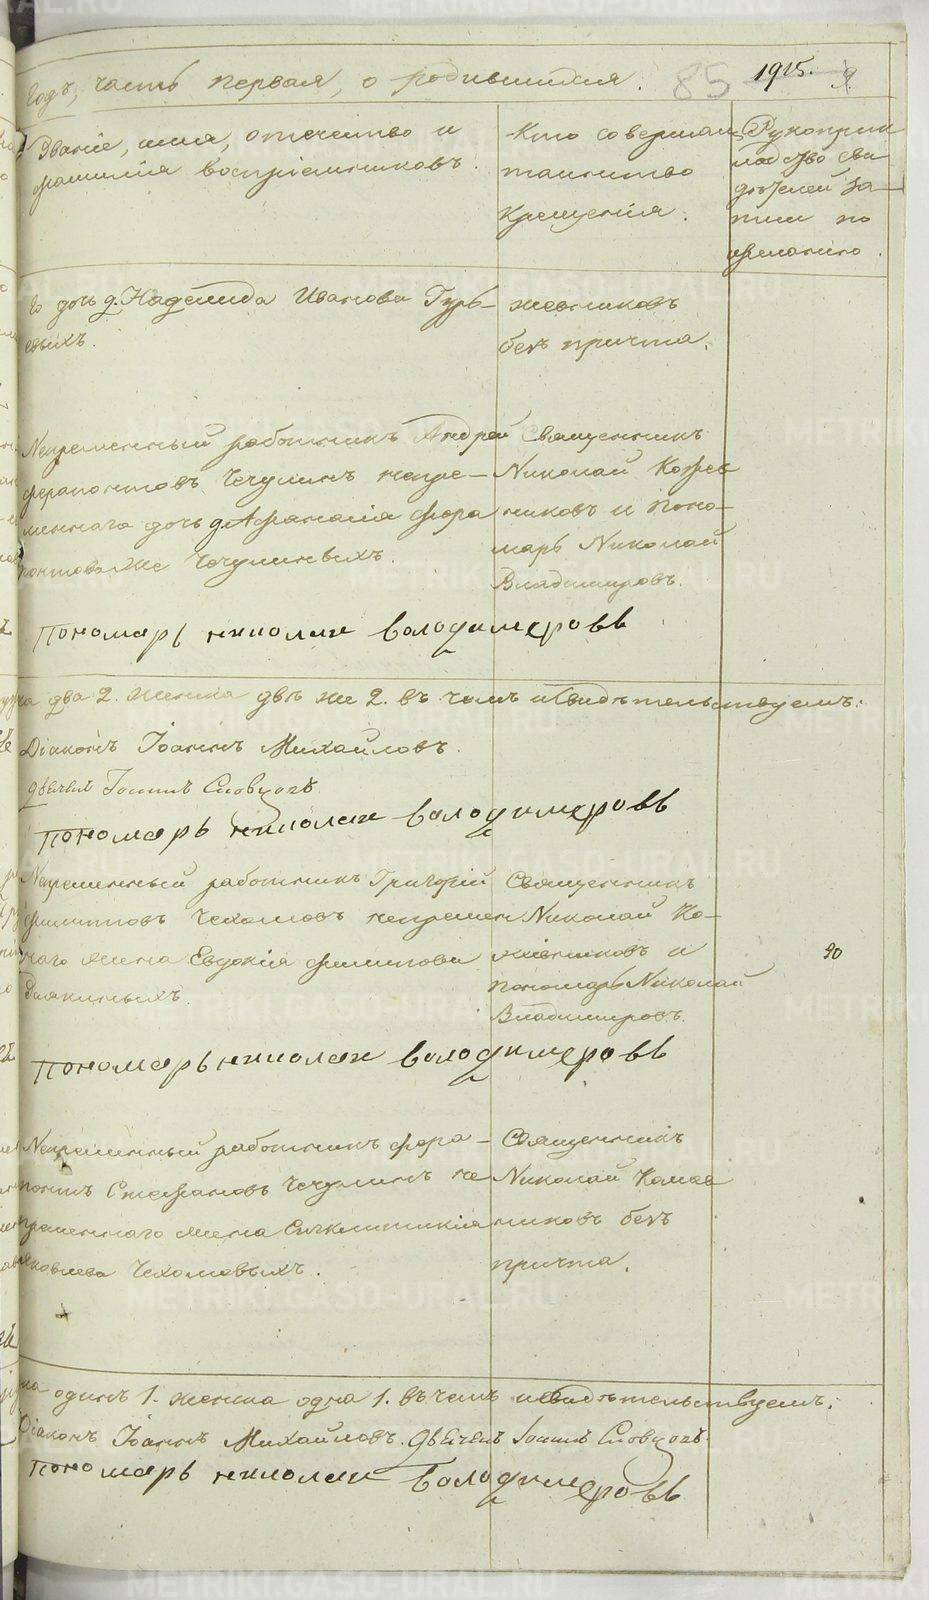 Годъ, часть первая, о родившихся. 85 1915.
Званіе, имя, отечество и
фамилія воспріемниковъ.
Кто совершалъ
таинство
крещенія.
Рукоприк
ладство сви
дѣтелей за
писи по
желанію.
го дочь д. Надежда Иванова Гурь-
евыхъ.
жевниковъ
безъ причта.
Непременный работникъ Андрей
Ферапонтовъ Чечулинъ непре-
меннаго дочь д. Афанасія Фера
понтова же Чечулиныхъ.
Священникъ
Николай Коже
никовъ и поно-
марь Николай
Владимировъ.
Пономарь николаи володимеровъ
на два 2. женска двѣ же 2. въ чемъ и свидѣтельствуемъ:
Діаконъ Іоаннъ Михайловъ.
Дьячекъ Іоаннъ Словцовъ
пономарь николаи володимеровъ
Непременный работникъ Григорій
Филипповъ Чехомовъ непремен
наго жена Евдокія Филипова
Дьякиныхъ.
Священникъ
Николай Ко-
жевниковъ и
пономарь Николай
Владимировъ.
90
пономарь николаи володимеровъ
Непременный работникъ Фера-
понтъ Стефановъ Чечулинъ не
пременнаго жена Синклитикія
Яковлева Чехомовыхъ.
Священникъ
Николай Кожев
никовъ безъ
причта.
на одинъ 1. женска одна 1. въ чемъ и свидѣтельствуемъ:
Діаконъ Іоаннъ Михайловъ. Дьячекъ Іоаннъ Словцовъ.
пономарь николаи володимеровъ
METRIKI.GASO-URAL.RU